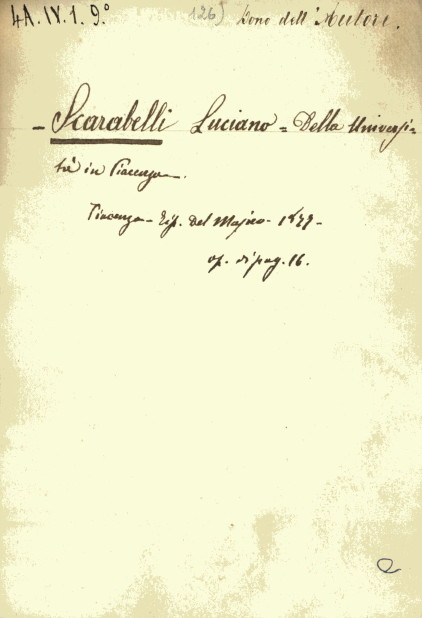 4A. IV. 1. 9.° 126) Dono dell'Autore.
- Scarabelli Luciano = Della Universi=
tà in Piacenza.
Piacenza - Tip. Del Majno - 1877 -
op. di pag. 16.